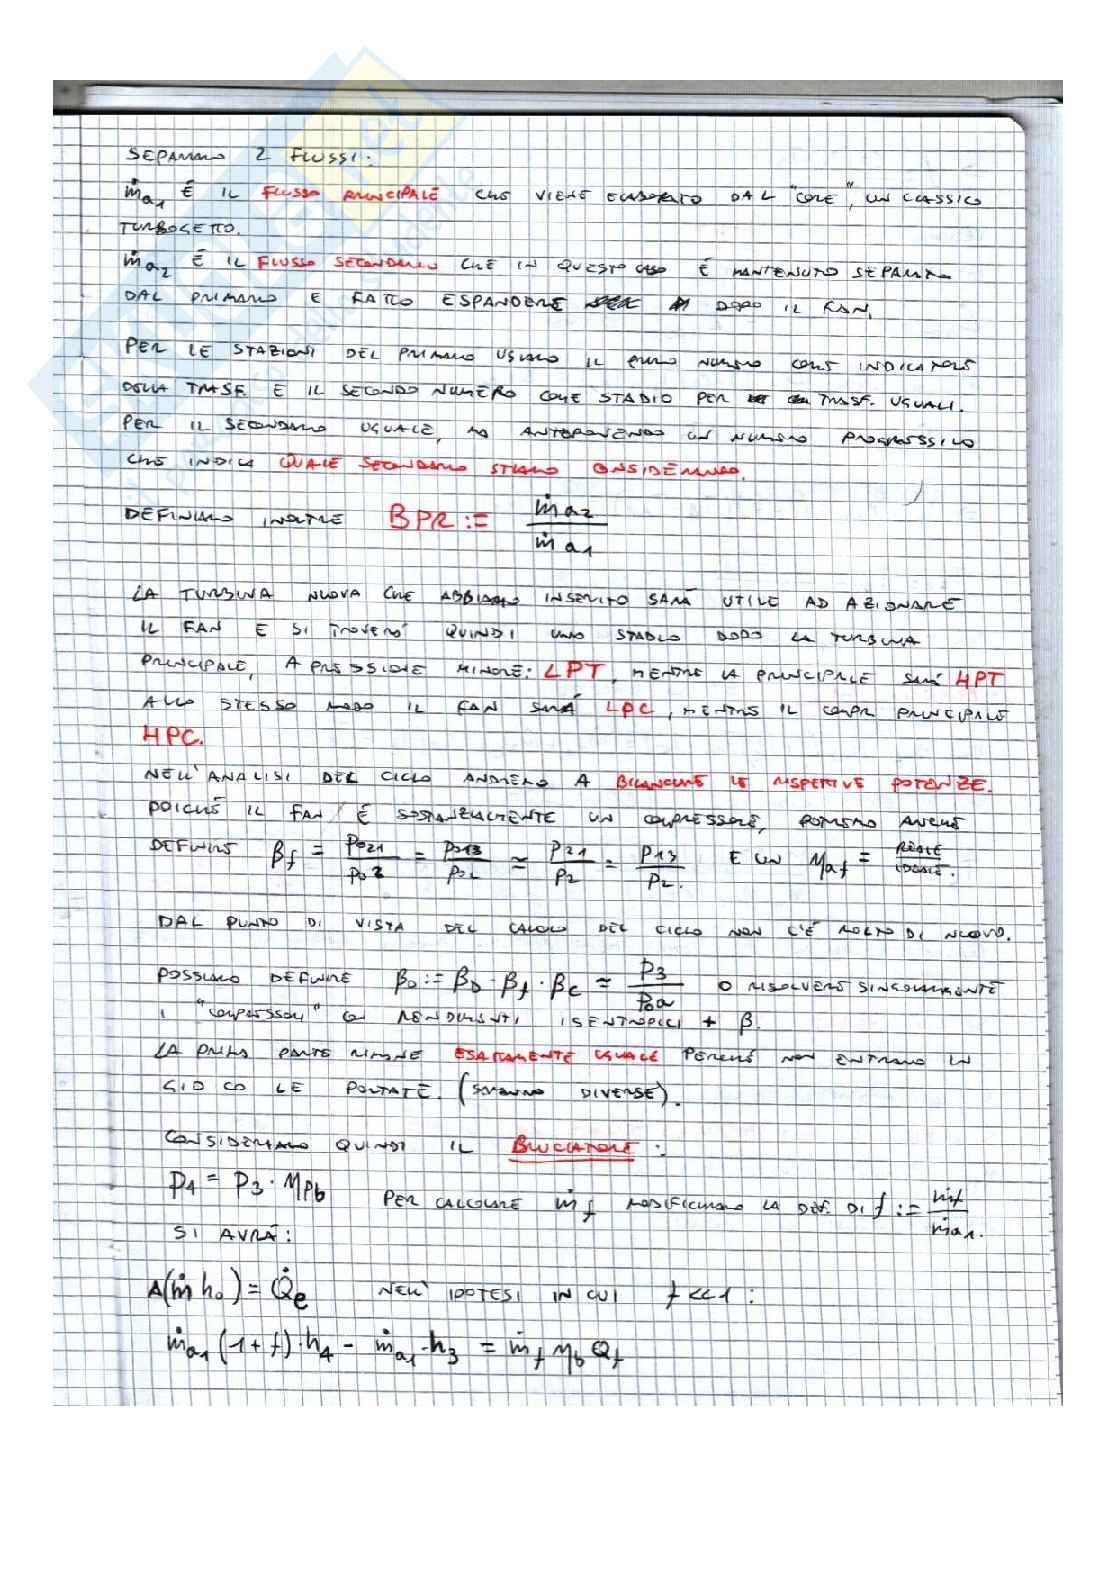 SEPARIAMO 2 FLUSSI:
ṁa1 È IL FLUSSO PRINCIPALE CHE VIENE ELABORATO DAL "CORE", UN CLASSICO
TURBOGETTO.
ṁa2 È IL FLUSSO SECONDARIO CHE IN QUESTO CASO È MANTENUTO SEPARATO
DAL PRIMARIO E FATTO ESPANDERE DOPO IL FAN.
PER LE STAZIONI DEL PRIMARIO USIAMO IL PRIMO NUMERO COME INDICATORE
DELLA TRASF. E IL SECONDO NUMERO COME STADIO PER TRASF. UGUALI.
PER IL SECONDARIO UGUALE, ANTEPONENDO UN NUMERO PROGRESSIVO
CHE INDICA QUALE SECONDARIO STIAMO CONSIDERANDO.
DEFINIAMO INOLTRE BPR := ṁa2 / ṁa1
LA TURBINA NUOVA CHE ABBIAMO INSERITO SARÀ UTILE AD AZIONARE
IL FAN E SI TROVERÀ QUINDI UNO STADIO DOPO LA TURBINA
PRINCIPALE, A PRESSIONE MINORE: LPT, MENTRE LA PRINCIPALE SARÀ HPT
ALLO STESSO MODO IL FAN SARÀ LPC, MENTRE IL COMPR PRINCIPALE
HPC.
NELL'ANALISI DEL CICLO ANDREMO A BILANCIARE LE RISPETTIVE POTENZE.
POICHÉ IL FAN È SOSTANZIALMENTE UN COMPRESSORE, POTREMO ANCHE
DEFINIRE βf = p021/p02 = p013/p02 ≃ p21/p2 = p13/p2. E UN ηaf = REALE/IDEALE.
DAL PUNTO DI VISTA DEL CALCOLO DEL CICLO NON C'È MOLTO DI NUOVO.
POSSIAMO DEFINIRE β0 := βD · βf · βc ≃ p3/p0a O RISOLVERE SINGOLARMENTE
I "COMPRESSORI" CON RENDIMENTI ISENTROPICI + β.
LA PRIMA PARTE RIMANE ESATTAMENTE UGUALE PERCHÉ NON ENTRANO IN
GIOCO LE PORTATE. (SARANNO DIVERSE).
CONSIDERIAMO QUINDI IL BRUCIATORE:
p4 = p3 · ηpb PER CALCOLARE ṁf MODIFICHIAMO LA DEF. DI f := ṁf / ṁa1.
SI AVRÀ:
Δ(ṁ h0) = Q̇e NELL'IPOTESI IN CUI f<<1:
ṁa1 (1+f)·h4 - ṁa1·h3 = ṁf ηb Qf